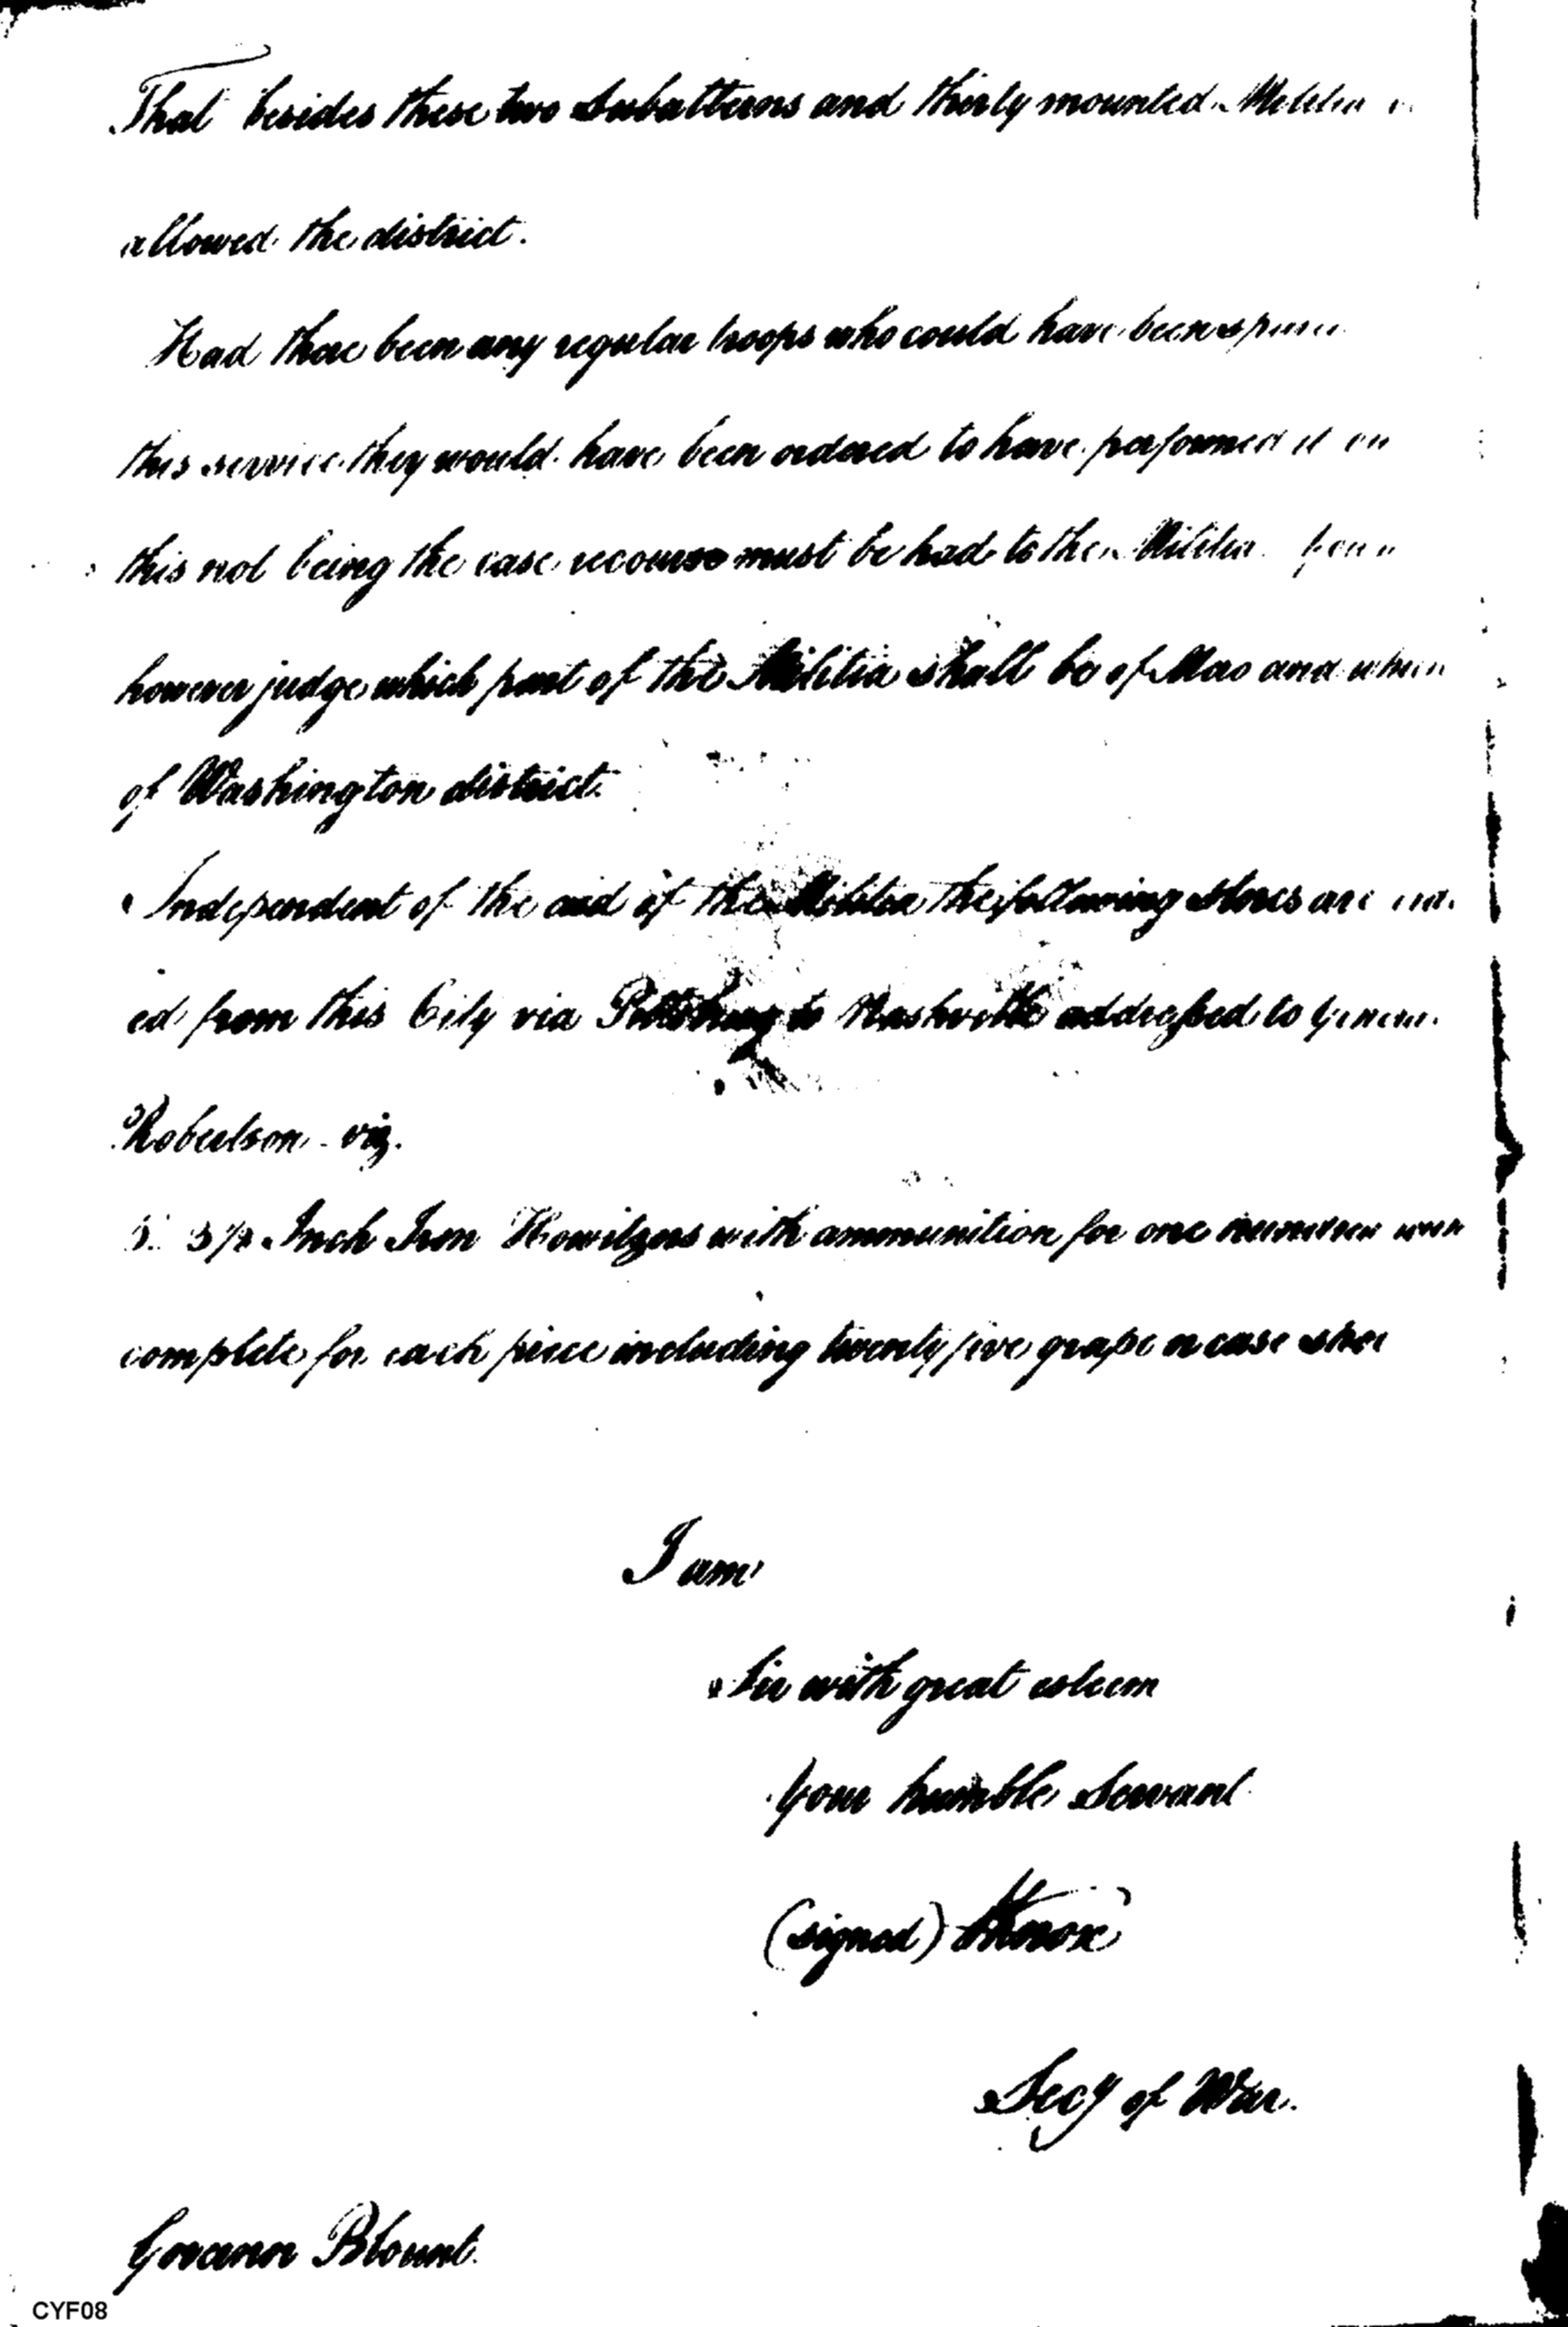 That besides these two Subalterns and thirty mounted Militia
allowed the district.
Had there been any regular troops who could have been
this service they would have been ordered to have performed it
this not being the case recourse must be had to the Militia
however judge which part of the Militia shall be of Mero and
of Washington district.
Independent of the aid of the Militia the following stores are
ed from this City via Pittsburg to Nashville addressed to
Robertson viz.
Inch Iron Howitzers with ammunition for one
complete for each piece including twenty five grape or case shot
I am
Sir with great esteem
Your humble Servant
(signed) HKnox
Secy of War.
Governor Blount.
CYF08